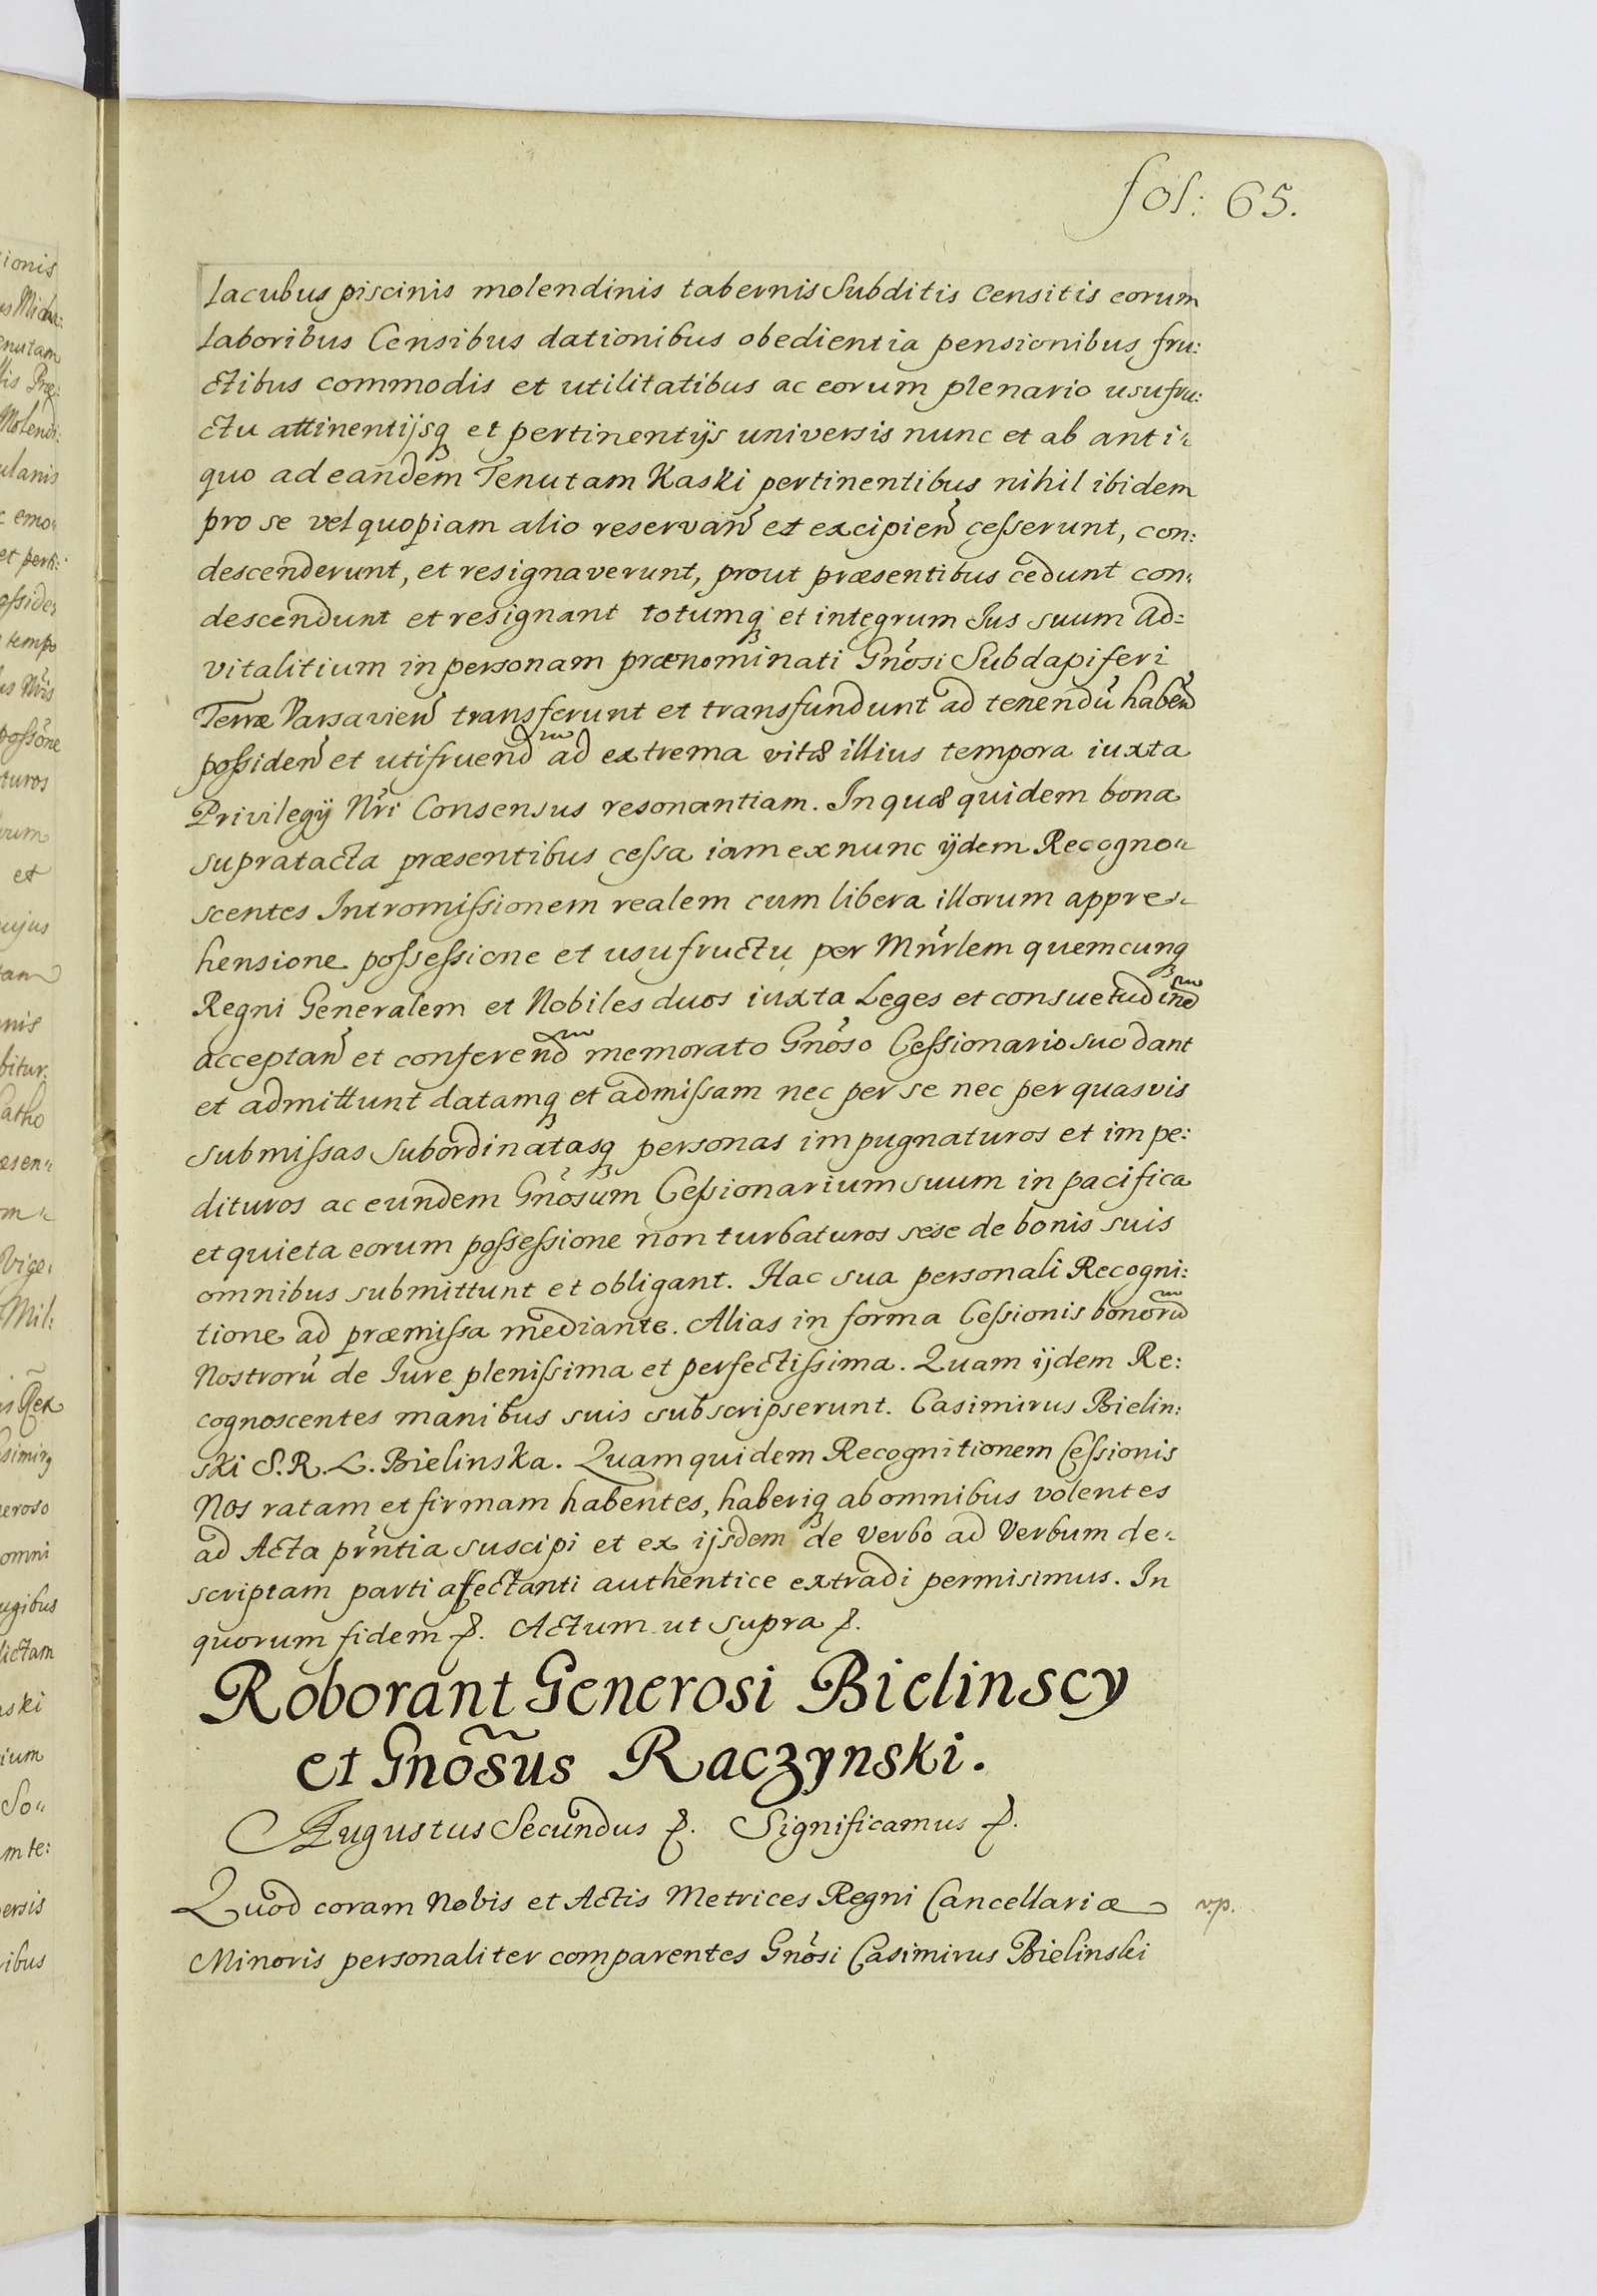 fol: 65.
lacubus piscinis molendinis tabernis Subditis Censitis eorum
laboribus Censibus dationibus obedientia pensionibus fru:
ctibus commodis et utilitatibus ac eorum plenario usufru:
ctu attinentijsq et pertinentijs universis nunc et ab anti-
quo ad eandem Tenutam Kaski pertinentibus nihil ibidem
pro se vel quopiam alio reservan̄ et excipien̄ cesserunt, con:
descenderunt, et resignaverunt, prout præsentibus cedunt con:
descendunt et resignant totumq et integrum Jus suum Ad=
vitalitium in personam prænominati Gnõsi Subdapiferi
Terræ Varsavien̄ transferunt et transfundunt ad tenendũ haben̄
possiden̄ et utifruend ad extrema vitæ illius tempora iuxta
Privilegij Nr̃i Consensus resonantiam. In quæ quidem bona
supratacta præsentibus cessa iam ex nunc ijdem Recogno-
scentes Intromissionem realem cum libera illorum appre-
hensione possessione et usufructu per Mnr̃lem quemcunq
Regni Generalem et Nobiles duos iuxta Leges et consuetudined
acceptan̄ et conferend memorato Gnõso Cessionario suo dant
et admittunt datamq et admissam nec per se nec per quasvis
submissas subordinatasq personas impugnaturos et impe:
dituros ac eundem Gnõsum Cessionarium suum in pacifica
et quieta eorum possessione non turbaturos sese de bonis suis
omnibus submittunt et obligant. Hac sua personali Recogni:
tione ad præmissa mediante. Alias in forma Cessionis bonorũ
Nostrorũ de Jure plenissima et perfectissima. Quam ijdem Re:
cognoscentes manibus suis subscripserunt. Casimirus Bielin:
ski S. R. L. Bielinska. Quam quidem Recognitionem Cessionis
Nos ratam et firmam habentes, haberiq ab omnibus volentes
ad Acta pr̃ntia suscipi et ex ijsdem de Verbo ad Verbum de-
scriptam parti affectanti authentice extradi permisimus. In
quorum fidem &. Actum ut supra &.
Roborant Generosi Bielinscy
et Gnõsus Raczynski.
Augustus Secundus &. Significamus &.
Quod coram Nobis et Actis Metrices Regni Cancellariæ v.p.
Minoris personaliter comparentes Gnõsi Casimirus Bielinski